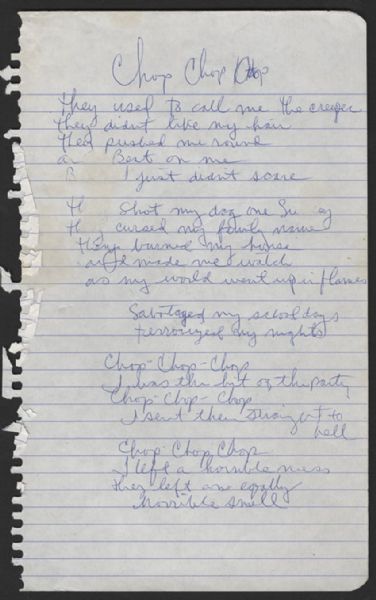 Chop Chop Chop
They used to call me the creeper
they didnt like my hair
They pushed me round
Beat on me
I just didnt scare
Shot my dog one
cursed my family name
burned my house
made me watch
as my world went up in flames
Sabotaged my schooldays
terrorized my nights
Chop-Chop-Chop
I was the hit of the party
Chop-Chop-Chop
I sent them straight to
hell
Chop-Chop Chop
I left a horrible mess
they left an equally
horrible smell